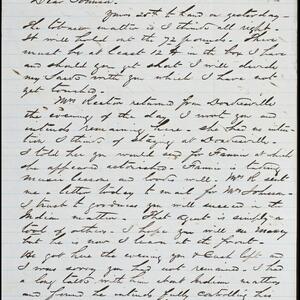 Dear Johnson.
Yours 20th to hand on yesterday.
The tobacco matter is I think all right.
It will be held out the 72 pounds. There
must be at least 12 # in the box I have
and should you get short I will divide
my with you which I have not
yet touched.
Mrs returned from
the evening of the day I wrote you and
intends remaining here. She had no inten-
tion I think of staying at
I told her you would for Fannie at which
she appeared astonished. Fannie is taking
music lessons and doing well. Mrs R sent
me a letter today to mail for Mr Johnson.
I trust to goodness you will succeed in the
Indian matter. That agent is simply a
tool of others. I hope you will see Maxey
but he is now I learn at the front.
got here the evening you & Cash left and
was sorry you had not remained. I had
a long talk with him about Indian matters
and found he intends fully controlling